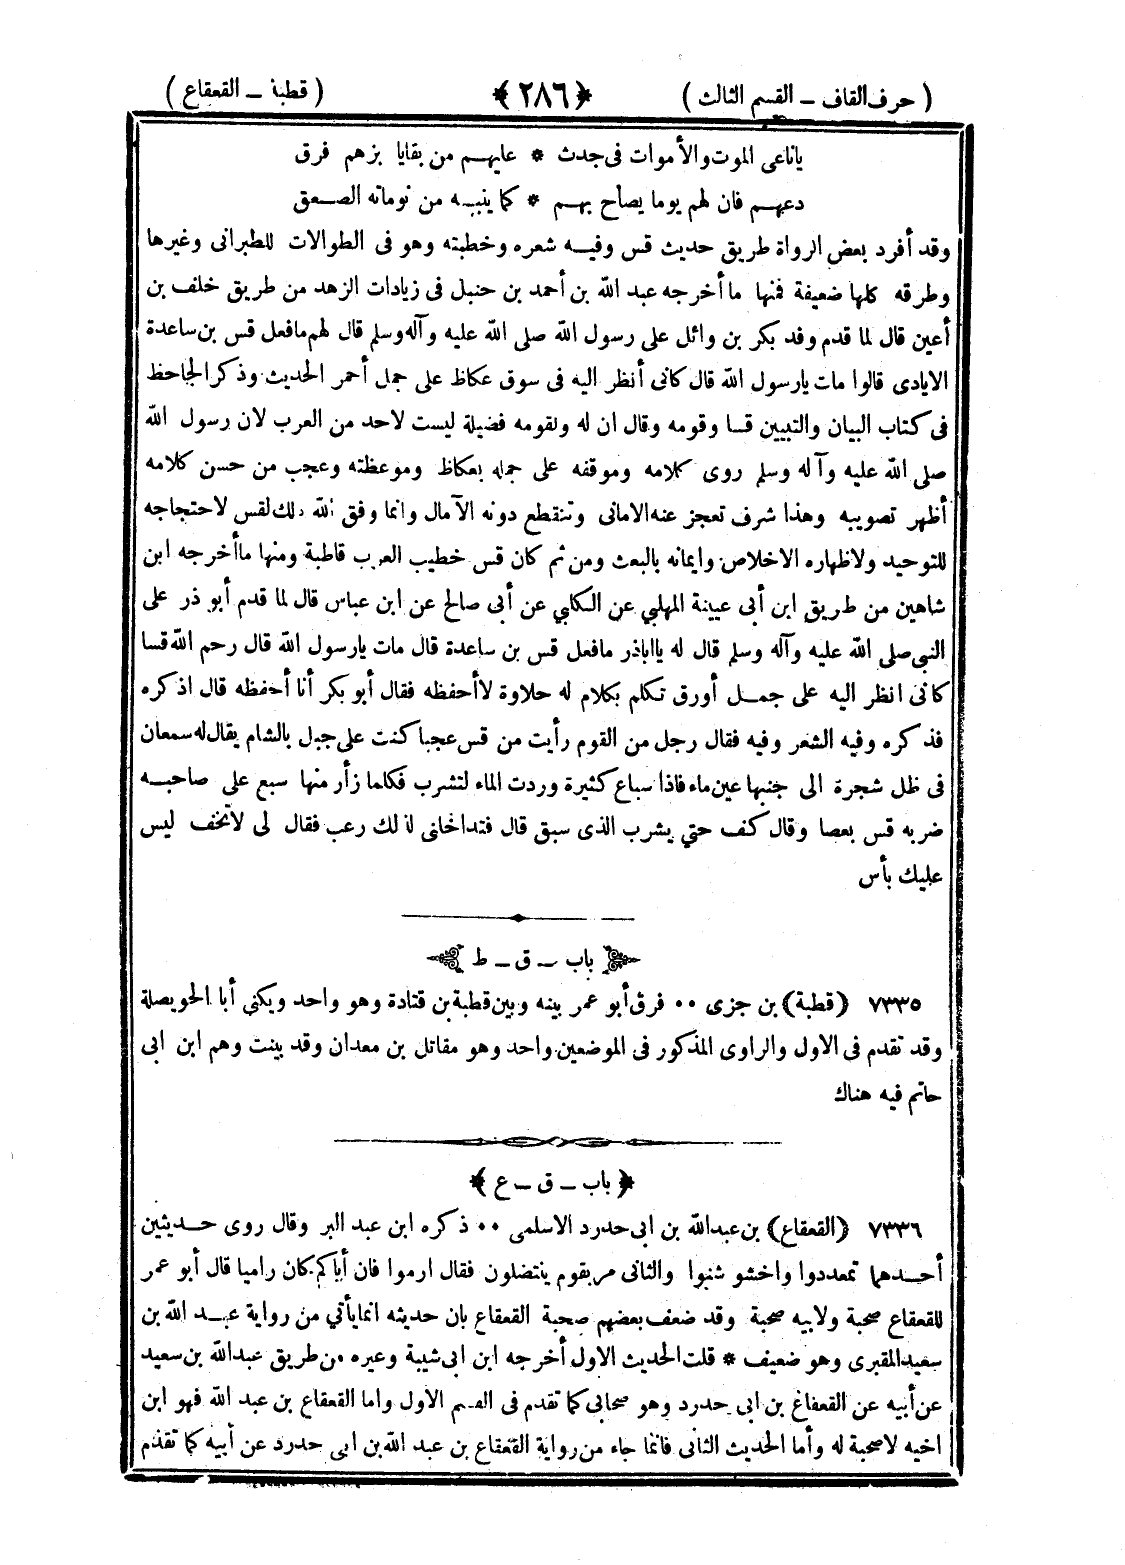 ( حرف القاف – القسم الثالث ) ﴿ ٢٨٦ ﴾ ( قطبة – القعقاع )
ياناعى الموت والأموات فى جدث * عليهم من بقايا بزهم فرق
دعهم فان لهم يوما يصاح بهم * كما ينبه من نوماته الصعق
وقد أفرد بعض الرواة طريق حديث قس وفيه شعره وخطبته وهو فى الطوالات للطبرانى وغيرها
وطرقه كلها ضعيفة فمنها ما أخرجه عبد الله بن أحمد بن حنبل فى زيادات الزهد من طريق خلف بن
أعين قال لما قدم وفد بكر بن وائل على رسول الله صلى الله عليه وآله وسلم قال لهم مافعل قس بن ساعدة
الايادى قالوا مات يارسول الله قال كانى أنظر اليه فى سوق عكاظ على جمل أحمر الحديث وذكر الجاحظ
فى كتاب البيان والتبيين قسا وقومه وقال ان له ولقومه فضيلة ليست لاحد من العرب لان رسول الله
صلى الله عليه وآله وسلم روى كلامه وموقفه على جمله بعكاظ وموعظته وعجب من حسن كلامه
أظهر تصويبه وهذا شرف تعجز عنه الامانى وتنقطع دونه الآمال وانما وفق الله ذلك لقس لاحتجاجه
للتوحيد ولاظهاره الاخلاص وايمانه بالبعث ومن ثم كان قس خطيب العرب قاطبة ومنها ما أخرجه ابن
شاهين من طريق ابن أبى عيينة المهلبي عن الكلبي عن أبى صالح عن ابن عباس قال لما قدم أبو ذر على
النبى صلى الله عليه وآله وسلم قال له يااباذر مافعل قس بن ساعدة قال مات يارسول الله قال رحم الله قسا
كانى انظر اليه على جمل أورق تكلم بكلام له حلاوة لاأحفظه فقال أبو بكر أنا أحفظه قال اذكره
فذكره وفيه الشعر وفيه فقال رجل من القوم رأيت من قس عجبا كنت على جبل بالشام يقال له سمعان
فى ظل شجرة الى جنبها عين ماء فاذا سباع كثيرة وردت الماء لتشرب فكلما زأر منها سبع على صاحبه
ضربه قس بعصا وقال كف حتي يشرب الذى سبق قال فتداخلنى لذلك رعب فقال لى لاتخف ليس
عليك بأس
باب – ق – ط
٧٣٣٥ ﴿ قطبة ﴾ بن جزى ٠٠ فرق أبو عمر بينه وبين قطبة بن قتادة وهو واحد ويكني أبا الحويصلة
وقد تقدم فى الاول والراوى المذكور فى الموضعين واحد وهو مقاتل بن معدان وقد بينت وهم ابن ابى
حاتم فيه هناك
﴿ باب – ق – ع ﴾
٧٣٣٦ ﴿ القعقاع ﴾ بن عبدالله بن ابى حدرد الاسلمى ٠٠ ذكره ابن عبد البر وقال روى حديثين
أحدهما تمعددوا واخشو شنوا والثانى مر بقوم ينتضلون فقال ارموا فان أباكم كان راميا قال أبو عمر
للقعقاع صحبة ولابيه صحبة وقد ضعف بعضهم صحبة القعقاع بان حديثه انما يأتي من رواية عبد الله بن
سعيد المقبرى وهو ضعيف * قلت الحديث الاول أخرجه ابن ابى شيبة وغيره من طريق عبدالله بن سعيد
عن أبيه عن القعقاع بن ابى حدرد وهو صحابى كما تقدم فى القسم الاول واما القعقاع بن عبد الله فهو ابن
اخيه لاصحبة له وأما الحديث الثانى فانما جاء من رواية القعقاع بن عبد الله بن ابى حدرد عن أبيه كما تقدم